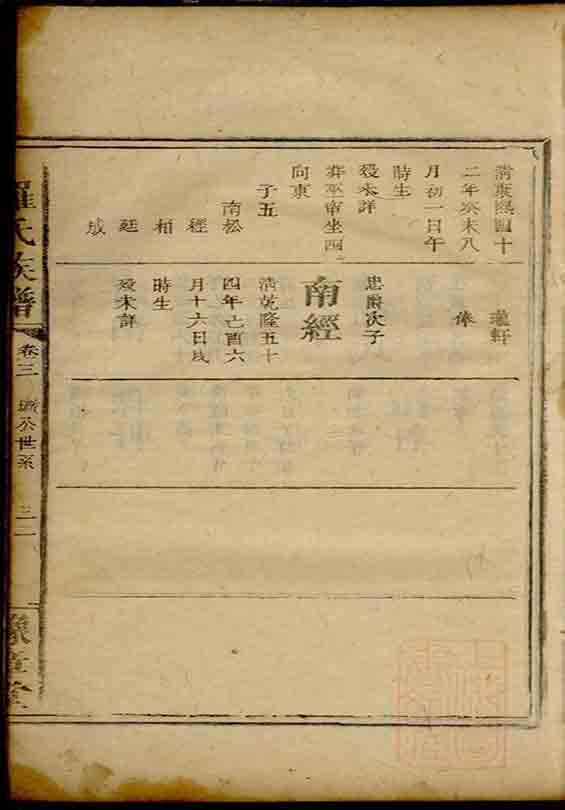 清康熙四十
二年癸未八
月初一日午
時生
歿未詳
葬巫帝坐西
向東
子五
南松
經
相
廷
成
瓊軒
俸
忠爵次子
南經
清乾隆五十
四年己酉六
月十六日戌
時生
歿未詳
羅氏族譜
卷三
公世系
豫章堂